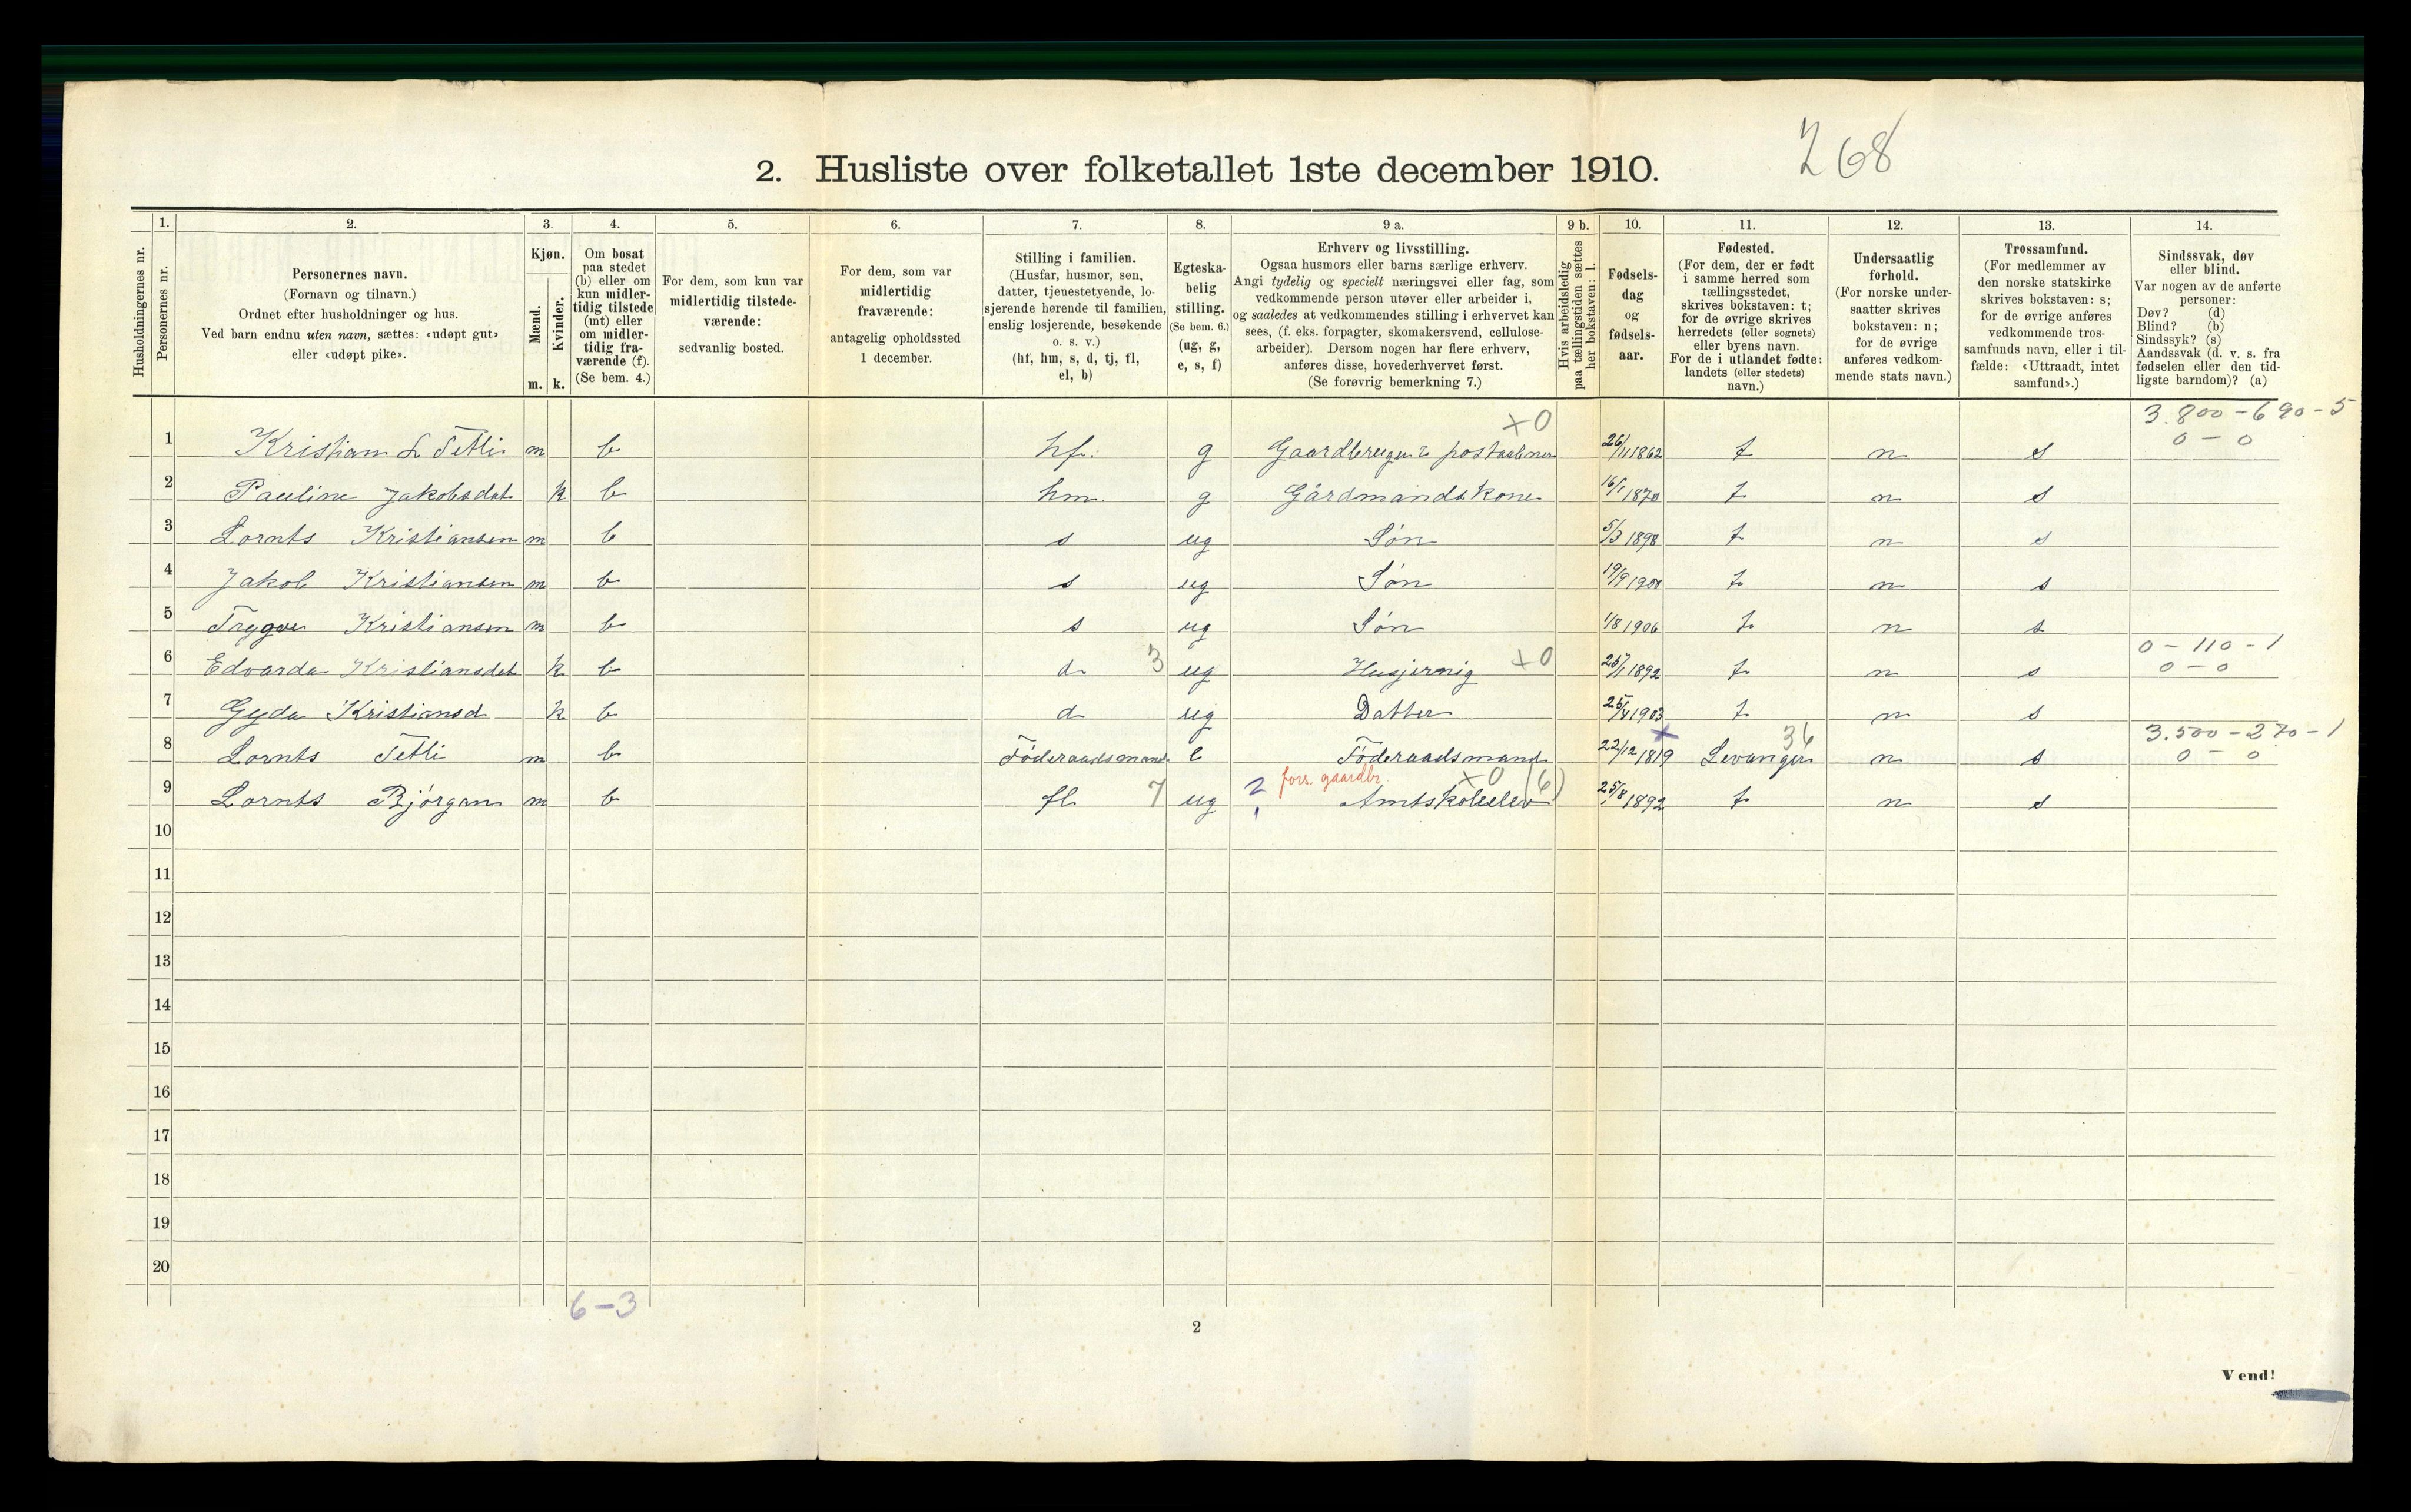 268
2. Husliste over folketallet 1ste december 1910.
1. 2. 3. 4. 5. 6. 7. 8. 9 a. 9 b. 10. 11. 12. 13. 14.
Husholdningernes nr.
Personernes nr.
Personernes navn.
(Fornavn og tilnavn.)
Ordnet efter husholdninger og hus.
Ved barn endnu uten navn, sættes: «udøpt gut»
eller «udøpt pike».
Kjøn.
Mænd.
Kvinder.
m. k.
Om bosat
paa stedet
(b) eller om
kun midler-
tidig tilstede
(mt) eller
om midler-
tidig fra-
værende (f).
(Se bem. 4.)
For dem, som kun var
midlertidig tilstede-
værende:
sedvanlig bosted.
For dem, som var
midlertidig
fraværende:
antagelig opholdssted
1 december.
Stilling i familien.
(Husfar, husmor, søn,
datter, tjenestetyende, lo-
sjerende hørende til familien,
enslig losjerende, besøkende
o. s. v.)
(hf, hm, s, d, tj, fl,
el, b)
Egteska-
belig
stilling.
(Se bem. 6.)
(ug, g,
e, s, f)
Erhverv og livsstilling.
Ogsaa husmors eller barns særlige erhverv.
Angi tydelig og specielt næringsvei eller fag, som
vedkommende person utøver eller arbeider i,
og saaledes at vedkommendes stilling i erhvervet kan
sees, (f. eks. forpagter, skomakersvend, cellulose-
arbeider). Dersom nogen har flere erhverv,
anføres disse, hovederhvervet først.
(Se forøvrig bemerkning 7.)
Hvis arbeidsledig
paa tællingstiden sættes
her bokstaven: l.
Fødsels-
dag
og
fødsels-
aar.
Fødested.
(For dem, der er født
i samme herred som
tællingsstedet,
skrives bokstaven: t;
for de øvrige skrives
herredets (eller sognets)
eller byens navn.
For de i utlandet fødte:
landets (eller stedets)
navn.)
Undersaatlig
forhold.
(For norske under-
saatter skrives
bokstaven: n;
for de øvrige
anføres vedkom-
mende stats navn.)
Trossamfund.
(For medlemmer av
den norske statskirke
skrives bokstaven: s;
for de øvrige anføres
vedkommende tros-
samfunds navn, eller i til-
fælde: «Uttraadt, intet
samfund».)
Sindssvak, døv
eller blind.
Var nogen av de anførte
personer:
Døv? (d)
Blind? (b)
Sindssyk? (s)
Aandssvak (d. v. s. fra
fødselen eller den tid-
ligste barndom)? (a)
x0 3.800-690-5
1 Kristian L Tetli m b hf. g Gaardbruger & postaabner 26/11 1862 t n s 0-0
2 Pauline Jakobsdat k b hm. g Gårdmandskone 16/1 1870 t n s
3 Lornts Kristiansen m b s ug Søn 5/3 1898 t n s
4 Jakob Kristiansen m b s ug Søn t n s
5 Trygve Kristiansen m b s ug Søn 1/8 1906 t n s
0-110-1
6 Edvarda Kristiansdat k b d 3 ug Husjerning x0 t n s 0-0
7 Gyda Kristiansd k b d ug Datter t n s
x 36 3.500-270-1
8 Lornts Tetli m b Føderaadsmand e Føderaadsmand 22/12 1819 Levanger n s 0-0
forr. gaardbr. x0 (6)
9 Lornts Bjørgan m b fl 7 ug 2 Amtskoleelev 25/8 1892 t n s
10
11
12
13
14
15
16
17
18
19
20
6-3
2
Vend!